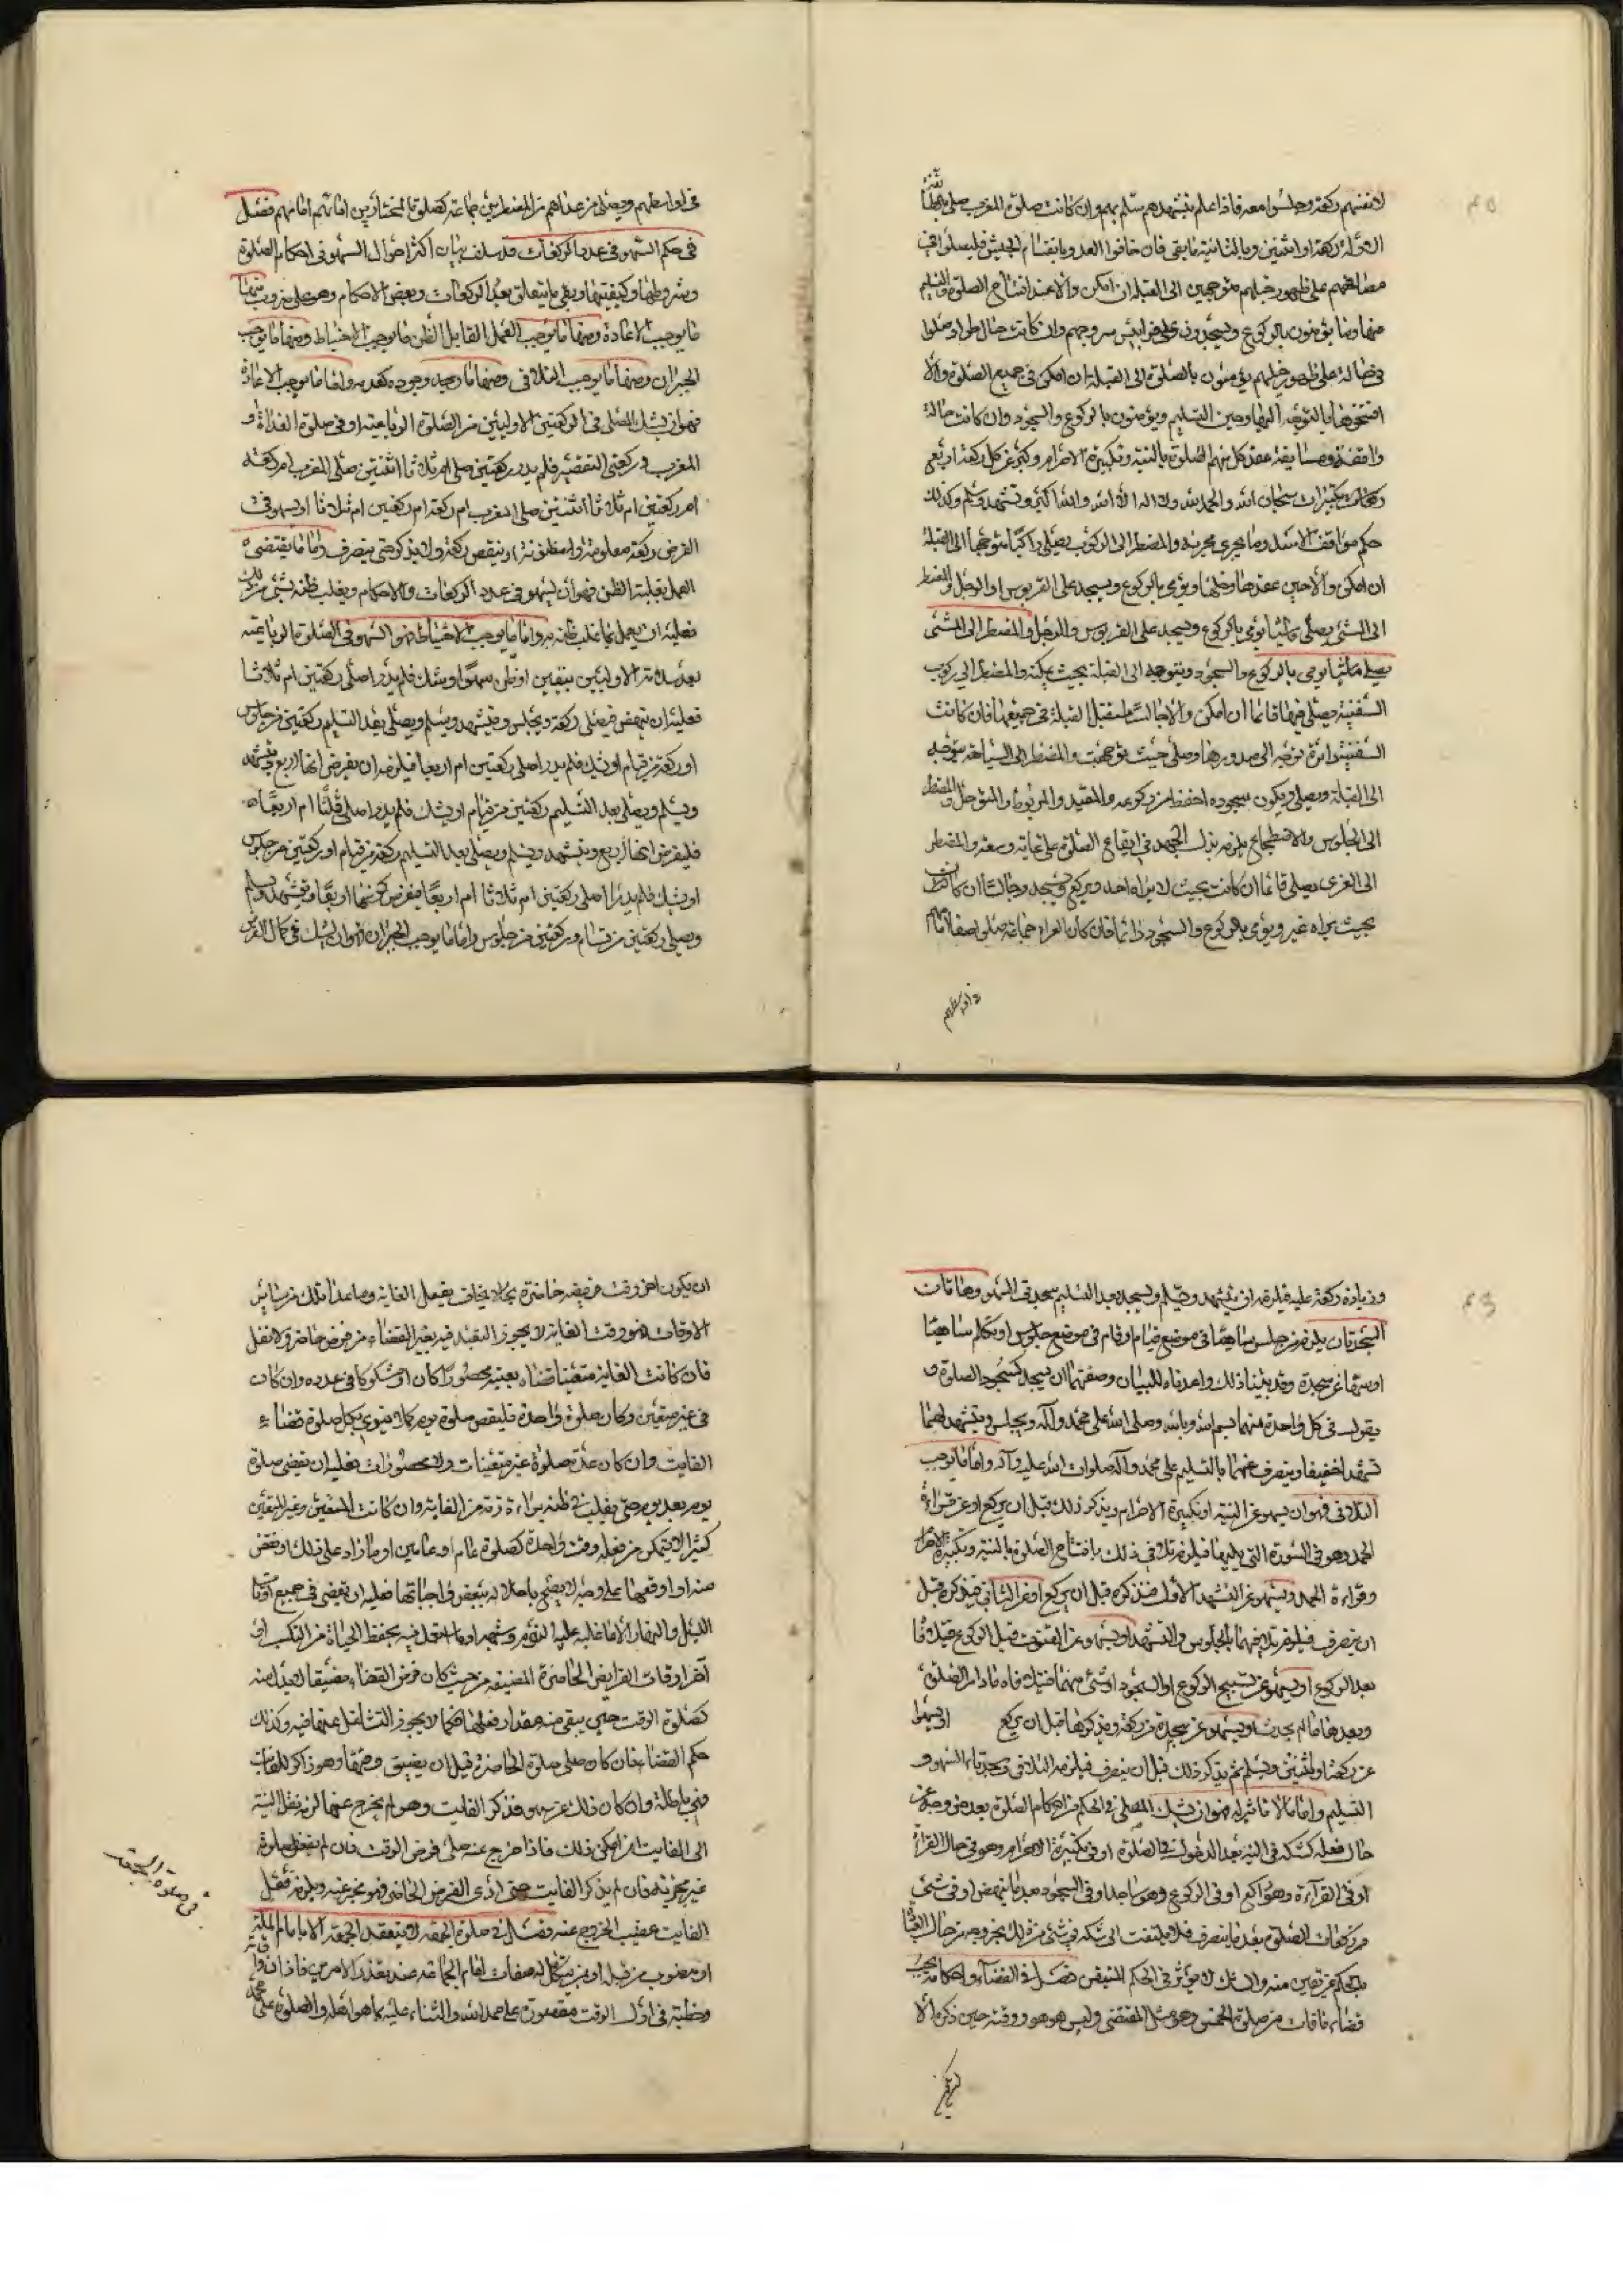 ٤٥
لانفسهم ركعة وجلسوا معه فاذا علم تشهدهم سلم بهم وان كانت صلوة المغرب صلى
الاولة ركعة او اثنتين وبالثانية ما بقى فان خافوا العدو بانقسام الجيش فليصلوا
مصافهم على ظهور خيلهم متوجهين الى القبلة ان امكن والا عند افتتاح الصلوة
منها وما يؤمنون بالركوع ويسجدون على قرابيس سروجهم وان كانت حال طراد صلوا
على ظهور خيلهم يؤمنون بالصلوة الى القبلة ان امكن فى جميع الصلوة والا
افتتحوها بالتوجه اليها وحين التسليم ويؤمنون بالركوع والسجود وان كانت حالة
واقفة ومسايفة عقد كل منهم الصلوة بالنية وتكبيرة الاحرام وكبر عن كل ركعة اربع
تكبيرات سبحان الله والحمد لله ولا اله الا الله والله اكبر وتشهد وسلم وكذلك
حكم مواقف الاسد وما يجرى مجريه والمضطر الى الركوب يصلى راكبا متوجها الى القبلة
ان امكن والا حين عقدها وحلها ويؤمى بالركوع ويسجد على القربوس او الرحل والمضطر
الى المشى يصلى ماشيا يؤمى بالركوع ويسجد على القربوس والرحل والمضطر الى المشى
يصلى ماشيا يومى بالركوع والسجود ويتوجه الى القبلة بحيث يمكنه والمضطر الى ركوب
السفينة يصلى فيها قائما ان امكن والا جالسا مستقبل القبلة فى جميعها فان كانت
السفينة دائرة توجه الى صدورها وصلى حيث توجهت والمضطر الى السباحة يتوجه
الى القبلة ويصلى ويكون سجوده اخفض من ركوعه والمقيد والمربوط والمتوحل والمضطر
الى الجلوس والاضطجاع يلزمه بذل الجهد فى ايقاع الصلوة على غاية وسعه والمضطر
الى العرى يصلى قائما ان كانت بحيث لا يراه احد ويركع ويسجد وجالسا ان كان
بحيث يراه غيره ويؤمى بالركوع والسجود دائما فان كان العراة جماعة صلوا صفا
فى اوساطهم
فى اوساطهم ويصلى من عداهم من المضطرين جماعة كصلوة المختارين امامهم فصل
فى حكم السهو فى عدد الركعات قد سلف بيان اكثر احوال السهو فى احكام الصلوة
وشروطها وكيفيتها وبقى ما يتعلق بعدد الركعات وبعض الاحكام وهو على ضروب منها
ما يوجب الاعادة ومنها ما يوجب العمل القابل الظن ما يوجب الاحتياط ومنها ما يوجب
الجبران ومنها ما يوجب التلافى ومنها ما وجوده كعدمه واما ما يوجب الاعادة
فهو ان يشك المصلى فى الركعتين الاوليين من الصلوة الرباعية او فى صلوة الغداة و
المغرب و ركعتى التقصير فلم يدر ركعتين صلى ام ثلاثا اثنتين صلى المغرب ام ركعة
ام ركعتين ام ثلاثا اثنتين صلى المغرب ام ركعة ام ركعتين ام ثلاثا او يسهو فى
الفرض ركعة معلومة او مظنونة او ينقص ركعة ولا يذكر حتى ينصرف واما ما يقتضى
العمل بغلبة الظن فهو ان يسهو فى عدد الركعات والاحكام ويغلب ظنه بشئ من ذلك
فعليه ان يعمل بما غلب ظنه به واما ما يوجب الاحتياط فهو السهو فى الصلوة الرباعية
بعد سلامة الاوليين بيقين او ظن سهوا وشك فلم يدر اصلى ركعتين ام ثلاثا
فعليه ان ينهض فيصلى ركعة ويجلس ويتشهد ويسلم ويصلى بعد التسليم ركعتين من جلوس
او ركعة من قيام او شك فلم يدر اصلى ركعتين ام اربعا فيلزمه ان يفرض انها اربع ويتشهد
ويسلم ويصلى بعد التسليم ركعتين من قيام او يشك فلم يدر اصلى ثلثا ام اربعا
فليفرض انها اربع ويتشهد ويسلم ويصلى بعد التسليم ركعة من قيام او ركعتين من جلوس
او يشك فلم يدر اصلى ركعتين ام ثلاثا ام اربعا فيفرض كونها اربعا ويتشهد ويسلم
ويصلى ركعتين من قيام وركعتين من جلوس واما ما يوجب الجبران فهو ان يشك فى كمال الفرض
٤٦
وزيادة ركعة عليه فيلزمه ان يتشهد ويسلم ويسجد بعد التسليم سجدتى السهو وهاتان
السجدتان يلزمن من جلس ساهيا فى موضع قيام او قام فى موضع جلوس او تكلم ساهيا
او سها عن سجدة وقد بينا ذلك واعدناه للبيان وصفتهما ان يسجد كسجود الصلوة و
يقول فى كل واحدة منهما بسم الله وبالله وصلى الله على محمد وآله ويجلس ويتشهد لهما
تشهدا خفيفا وينصرف عنهما بالتسليم على محمد وآله صلوات الله عليه وآله واما ما يوجب
التلافى فهو ان يسهو عن النية او تكبيرة الاحرام ويذكر ذلك قبل ان يركع او عن قراءة
الحمد وهو فى السورة التى يليها فيلزم تلافى ذلك بافتتاح الصلوة بالنية وتكبيرة الاحرام
وقراءة الحمد ويسهو عن التشهد الاول فيذكره قبل ان يركع او عن الثانى فيذكره قبل
ان ينصرف فيلزم تلافيهما بالجلوس والتشهد او يسهو عن القنوت قبل الركوع
بعد الركوع او يسهو عن تسبيح الركوع او السجود او شئ منهما ما دام الصلوة
وبعدها ما لم يحدث او يسهو عن سجدة من ركعة ويذكرها قبل ان يركع او يسهوا
عن ركعة او اثنتين ويسلم ثم يذكر ذلك قبل ان ينصرف فيلزمه التلافى وسجدتا السهو و
التسليم واما ما لا تاثير له فهو ان يشك المصلى فى الحكم من احكام الصلوة بعد
حال فعله كشكه فى النية بعد الدخول فى الصلوة او فى تكبيرة الاحرام وهو فى حال القراءة
او فى القراءة وهو راكع او فى الركوع وهو ساجد او فى السجود بعد ما ينهض او فى شئ
من ركعات الصلوة بعد ما ينصرف فلا يلتفت الى شكه فى شئ من ذلك بخروجه من حال
الحكم عن يقين منه والشك لا يؤثر فى الحكم المتيقن فصل فى القضاء واحكامه يجب
قضاء ما فات من صلوة الخمس وهو مثل المقتضى وليس هو هو ووقته حين ذكره الا
ان يكون
ان يكون اخر وقت فريضة حاضرة يخاف بفعل الفايتة وما عدا ذلك من سائر
الاوقات فهو وقت الفايتة لا يجوز التعبد فيه بغير القضاء من فرض حاضر ولا نفل
فان كانت الفايتة متعينا قضاه بعينه محصورا كان او مشكوكا فى عدده وان كان
فى غير متعين وكان صلوة واحدة فليقض صلوة يوم كملا ينوى بكل صلوة قضاء
الفايت وان كان عدة صلوة غير متعينات ولا محصورات فعليه ان يقضى صلوة
يوم بعد يوم حتى يغلب فى ظنه براءة ذمته من الفايتة وان كانت المتعين وغير المتعين
كثيرا لا يتمكن من فعله وقت واحدة كصلوة عام او عامين او ما زاد على ذلك او نقص
منه او اوقعها على وجه لا يصح باخلاله ببعض واجباتها فعليه ان يقضى فى جميع اوقات
الليل والنهار الا ما غلب عليه النوم وشهر او ما اشتغل فيه بحفظ الحياة من التكسب او
آخر اوقات الفرايض الحاضرة المضيقة من حيث كان فرض القضاء مضيقا لا بدل منه
كصلوة الوقت حين يبقى منه مقدار فعلها فكما لا يجوز التشاغل عنها فيه وكذلك
حكم القضاء فان كان صلى صلوة الحاضرة قبل ان يضيق وقتها وهو ذاكر للفايت
فهى باطلة وان كان ذلك عن سهو فذكر الفايت وهو لم يخرج عنها لزمه نقل النية
الى الفايت ان امكن ذلك فاذا خرج عنه صلى فرض الوقت فان لم يفعل فصلوة
غير مجزية فان لم يذكر الفايت حتى ادى الفرض الحاضر فهو مجز عنه ويلزمه فعل
الفايت عقيب الخروج عنه فصل فى صلوة الجمعة لا ينعقد الجمعة الا بامام الملة
او منصوب من قبله او من يتكامل له صفات امام الجماعة عند تعذر الامرين فاذا
وخطبة فى اول الوقت مقصورة على حمد الله والثناء عليه بما هو اهله والصلوة على